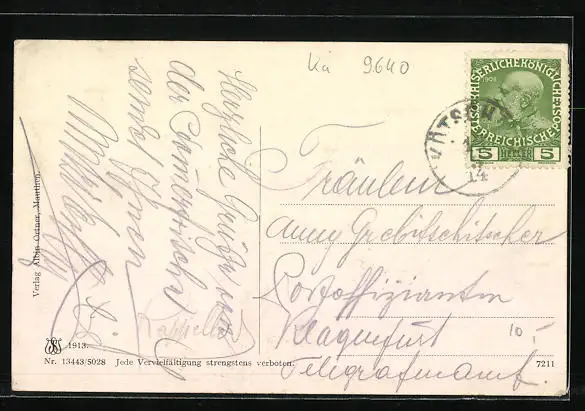 Ka 9640
Herzliche Grüße von
der Sommerfrische
sendet Ihnen
KAISERLICHE KÖNIGLICHE ÖSTERREICHISCHE POST
1908
5 HELLER 5
KÖTSCH
14
Fräulein
Anny Grebitschitscher
Postoffiziantin
Klagenfurt
Telegrafenamt.
10.-
Verlag Albin Ortner, Mauthen.
1913.
Nr. 13443/5028 Jede Vervielfältigung strengstens verboten.
7211